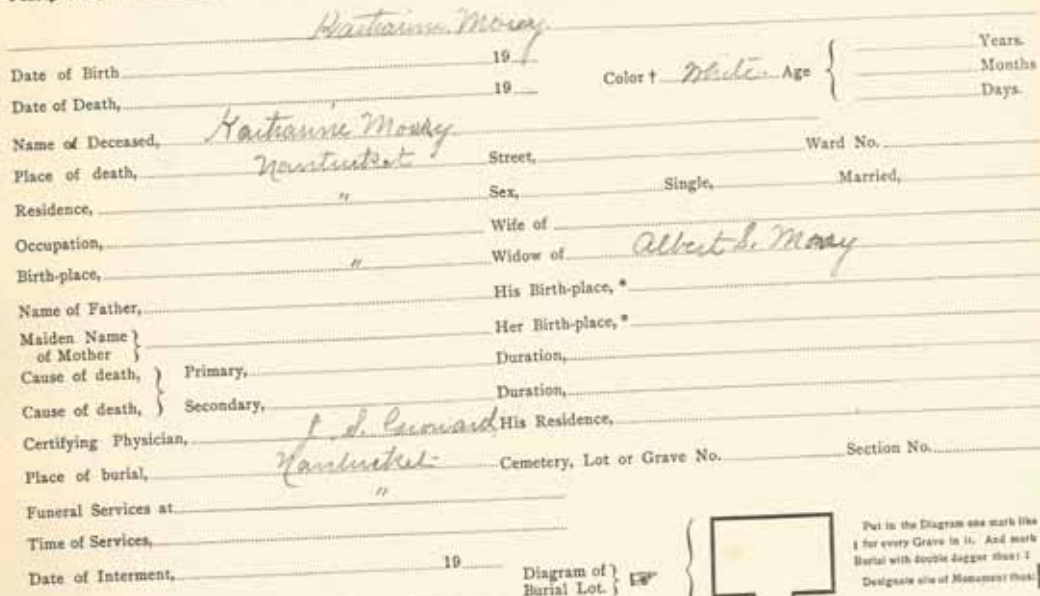 Date of Birth 19
Color † White. Age Years.
Months
Days.
Date of Death, 19
Name of Deceased,
Place of death, Nantucket Street, Ward No.
Residence, " Sex, Single, Married,
Occupation, Wife of
Birth-place, " Widow of Albert S.
Name of Father, His Birth-place, *
Maiden Name
of Mother Her Birth-place, *
Cause of death, Primary, Duration,
Cause of death, Secondary, Duration,
Certifying Physician, His Residence,
Place of burial, Nantucket Cemetery, Lot or Grave No. Section No.
Funeral Services at "
Time of Services,
Date of Interment, 19
Diagram of
Burial Lot.
Put in the Diagram one mark like
for every Grave in it. And mark
Burial with double dagger thus: ‡
Designate site of Monument thus: